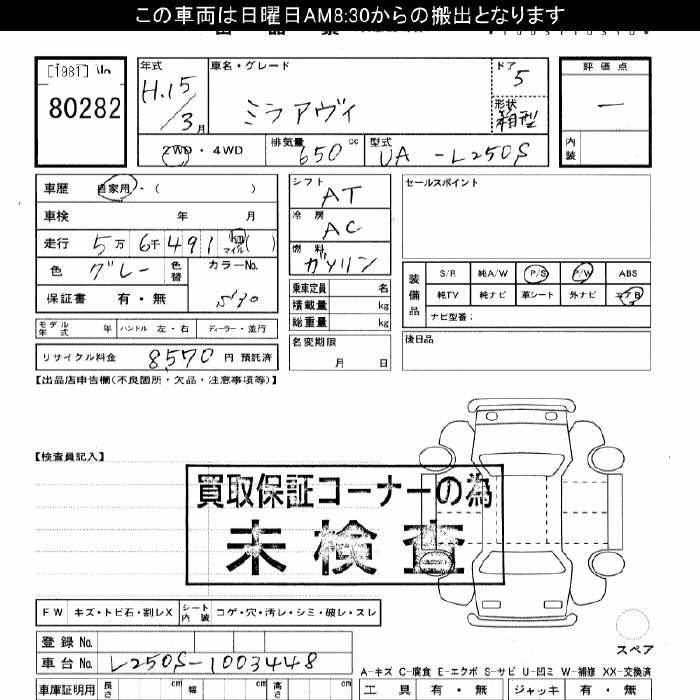 この車両は日曜日AM8:30からの搬出となります
[1981]
80282
年式
H.15/3月
車名・グレード
ミラアヴィ
ドア
5
形状
箱型
評価点
ー
内装
2WD・4WD
排気量
650cc
型式
UA-L250S
車歴 自家用・( )
車検 年 月
走行 5万 6千 491 km マイル ( )
色 グレー 色替 カラーNo.
保証書 有・無
シフト AT
冷房 AC
燃料 ガソリン
乗車定員 名
積載量 kg
総重量 kg
セールスポイント
装備品
S/R 純A/W P/S P/W ABS
純TV 純ナビ 革シート 外ナビ エアB
ナビ型番:
モデル年式 年 ハンドル 左・右 ディーラー・並行
名変期限
月 日
後日品
リサイクル料金 8570 円 預託済
【出品店申告欄(不良箇所・欠品・注意事項等)】
【検査員記入】
買取保証コーナーの為
未検査
FW キズ・トビ石・割レX シート内装 コゲ・穴・汚レ・シミ・破レ・スレ
スペア
登録No.
車台No. L250S-1003448
A-キズ C-腐食 E-エクボ S-サビ U-凹ミ W-補修 XX-交換済
車庫証明用 長さ cm 幅 cm 高さ cm
工具 有・無 ジャッキ 有・無